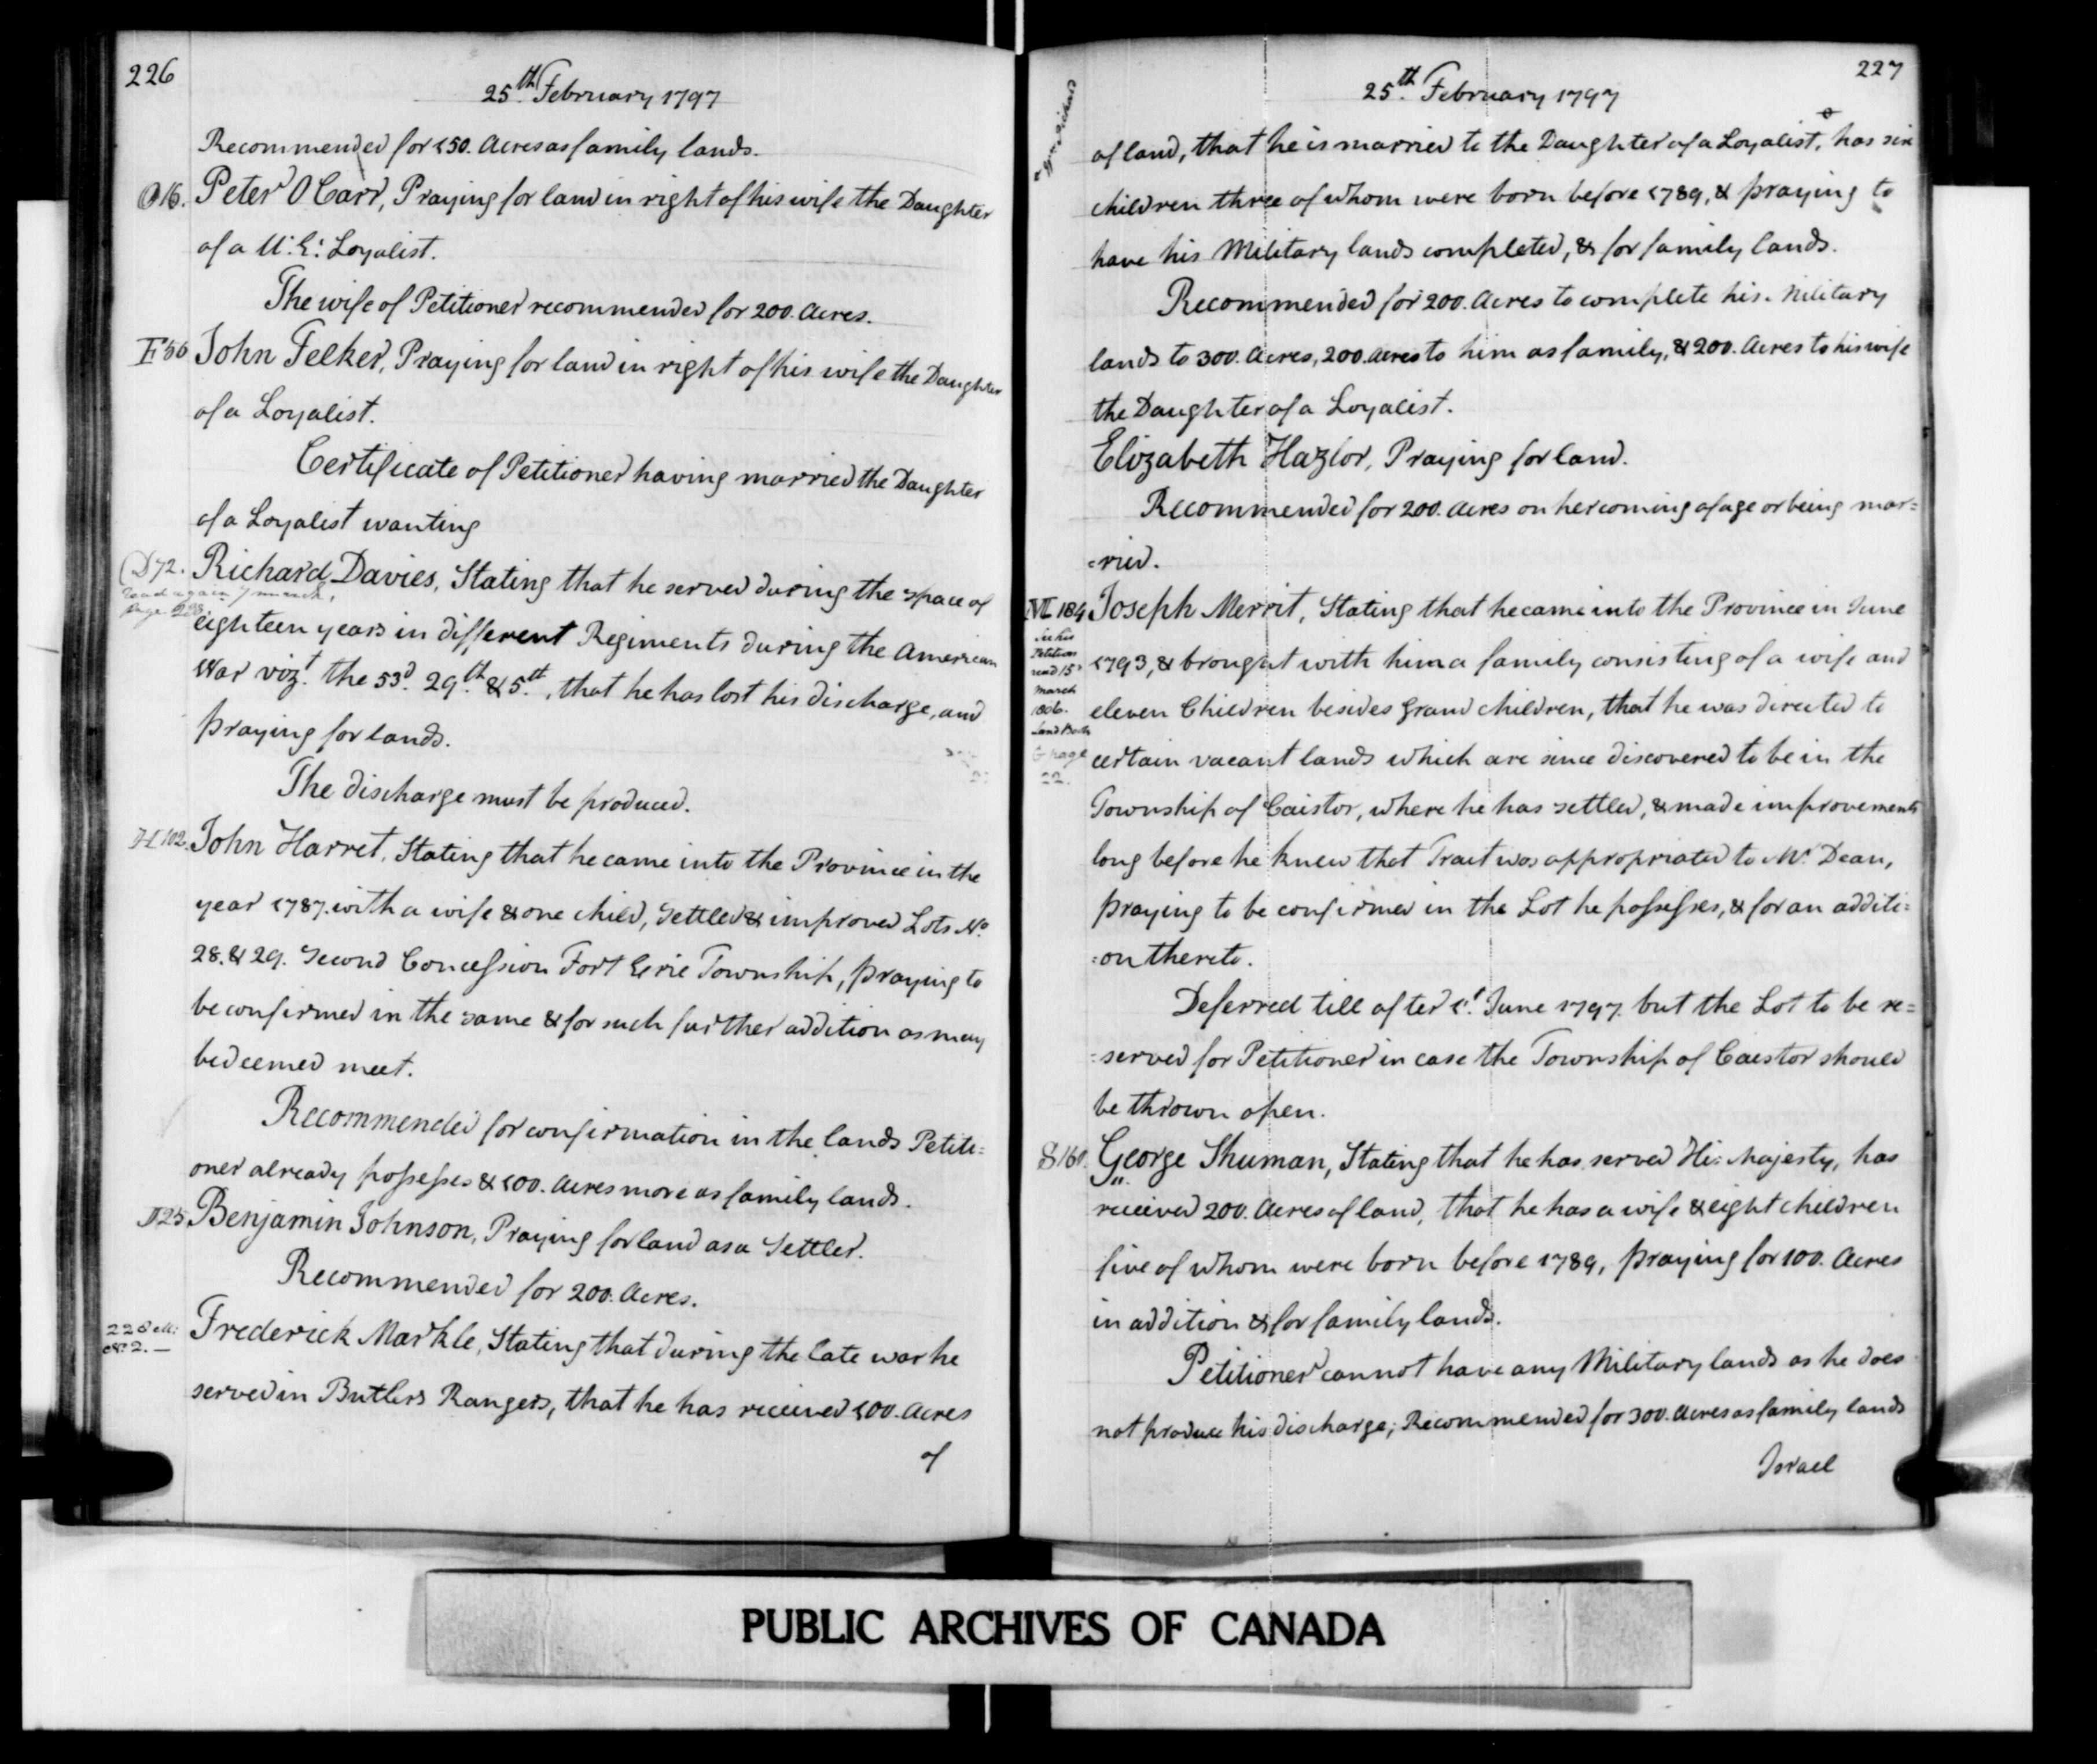 226
25.th February 1797
Recommended for 150. Acres as family lands.
O16. Peter O Carr, Praying for land in right of his wife the Daughter
of a U: E: Loyalist.
The wife of Petitioner recommended for 200. Acres.
F56 John Felker, Praying for land in right of his wife the Daughter
of a Loyalist.
Certificate of Petitioner having married the Daughter
of a Loyalist wanting
D72. Richard Davies, Stating that he served during the space of
read again 7 march,
page. 258.
eighteen years in different Regiments during the American
War vizt. the 53d. 29.th & 5.th, that he has lost his discharge, and
praying for lands.
The discharge must be produced.
H102. John Harret, Stating that he came into the Province in the
year 1787. with a wife & one child, Settled & improved Lots No.
28. & 29. Second Concession Fort Erie Township, praying to
be confirmed in the same & for such further addition as may
be deemed meet.
Recommended for confirmation in the lands Petiti=
oner already possesses & 100. Acres more as family lands.
J25 Benjamin Johnson, Praying for land as a Settler.
Recommended for 200. Acres.
228 M: No. 2. — Frederick Markle, Stating that during the late war he
served in Butlers Rangers, that he has received 100. Acres
of
227
25.th February 1797
of land, that he is married to the Daughter of a Loyalist, has six
children three of whom were born before 1789, & praying to
have his Military lands completed, & for family lands.
Recommended for 200. Acres to complete his Military
lands to 300. Acres, 200. Acres to him as family, & 200. Acres to his wife
the Daughter of a Loyalist.
Elizabeth Hazlor, Praying for land.
Recommended for 200. Acres on her coming of age or being mar=
=ried.
M184 Joseph Merrit, Stating that he came into the Province in June
See his
Petition
read 15
March
1806.
Land Book
G page
22.
1793, & brought with him a family consisting of a wife and
eleven Children besides Grand children, that he was directed to
certain vacant lands which are since discovered to be in the
Township of Caistor, where he has settled, & made improvements
long before he knew that Tract was appropriated to Mr. Dean,
praying to be confirmed in the Lot he possesses, & for an additi=
=on thereto.
Deferred till after 1st. June 1797. but the Lot to be re=
=served for Petitioner in case the Township of Caistor should
be thrown open.
S160. George Shuman, Stating that he has served His Majesty, has
received 200. Acres of land, that he has a wife & eight children
five of whom were born before 1789, praying for 100. Acres
in addition & for family lands.
Petitioner cannot have any Military lands as he does
not produce his discharge; Recommended for 300. Acres as family lands
Israel
PUBLIC ARCHIVES OF CANADA